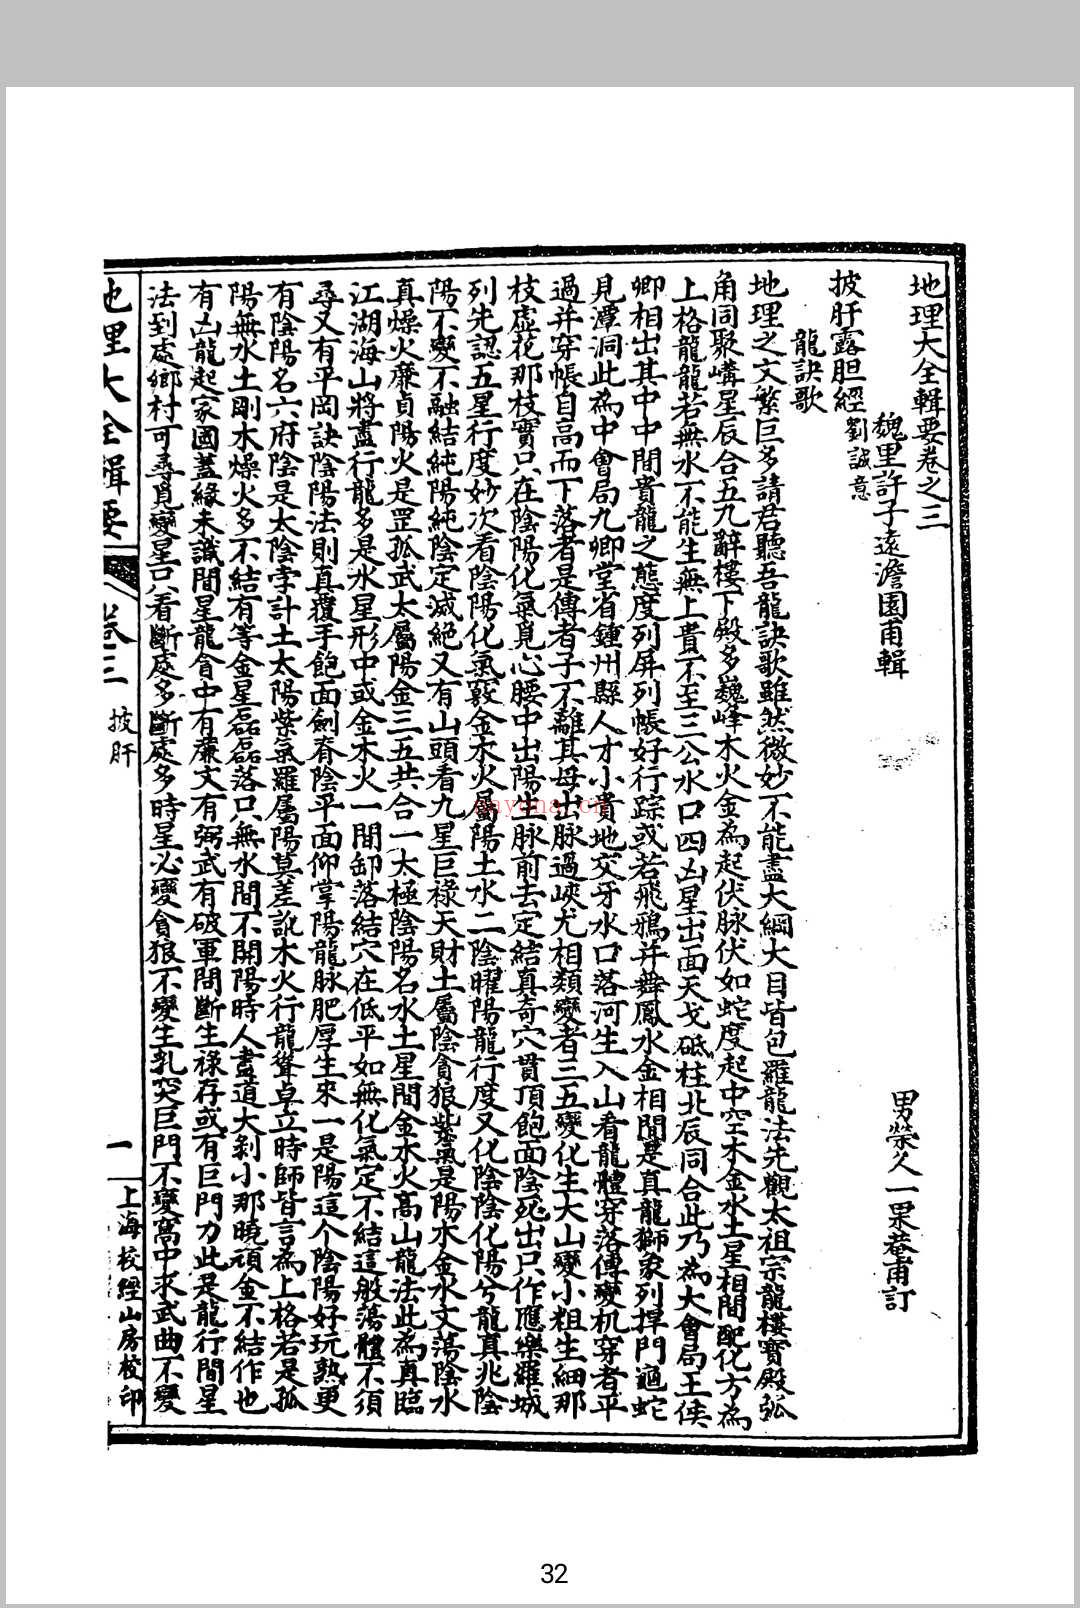 地理大全輯要卷之三
魏里許子遠澹園甫輯
男榮久一杲菴甫訂
披肝露胆經 劉誠意
龍訣歌
地理之文繁巨多請君聽吾龍訣歌雖然微妙不能盡大綱大目皆包羅龍法先觀太祖宗龍樓寶殿弧
角同聚嶹星辰合五九辭樓下殿多巍峰木火金為起伏脉伏如蛇度起中空木金水土星相間配化方為
上格龍龍若無水不能生無上貴不至三公水口四凶星出面天戈砥柱北辰同合此乃為大會局王侯
卿相出其中中間貴龍之態度列屏列帳好行踪或若飛鴉并舞鳳水金相間是真龍獅象列捍門龜蛇
見潭洞此為中會局九卿堂省鍾州縣人才小貴地交牙水口落河生入山看龍體穿落傳變机穿者平
過并穿帳自高而下落者是傳者子不離其母出脉過峽尤相類變者三五變化生大山變小粗生細那
枝虛花那枝實只在陰陽化氣覓心腰中出陽生脉前去定結真奇穴貫頂飽面陰死出只作應樂羅城
列先認五星行度妙次看陰陽化氣竅金木火屬陽土水二陰曜陽龍行度又化陰陰化陽兮龍真兆陰
陽不變不融結純陽純陰定滅絕又有山頭看九星巨祿天財土屬陰貪狼紫氣是陽水金水文蕩陰水
真燥火廉貞陽火是罡孤武太屬陽金三五共合一太極陰陽名水土星間金水火高山龍法此為真臨
江湖海山將盡行龍多是水星形中或金木火一間卸落結穴在低平如無化氣定不結這般蕩體不須
尋又有平岡訣陰陽法則真覆手飽面劍脊陰平面仰掌陽龍脉肥厚生來一是陽這个陰陽好玩熟更
有陰陽名六府陰是太陰孛計土太陽紫氣羅屬陽莫差訛木火行龍聳卓立時師皆言為上格若是孤
陽無水土剛木燥火多不結有等金星磊磊落只無水間不開陽時人盡道大剝小那曉頑金不結作也
有凶龍起家國蓋緣未識間星龍貪中有廉文有弼武有破軍間斷生祿存或有巨門力此是龍行間星
法到處鄉村可尋覓變星只看斷處多斷處多時星必變貪狼不變生乳突巨門不變窩中求武曲不變
地理大全輯要 卷三 披肝 一 上海校經山房校印
nayona.cn
32